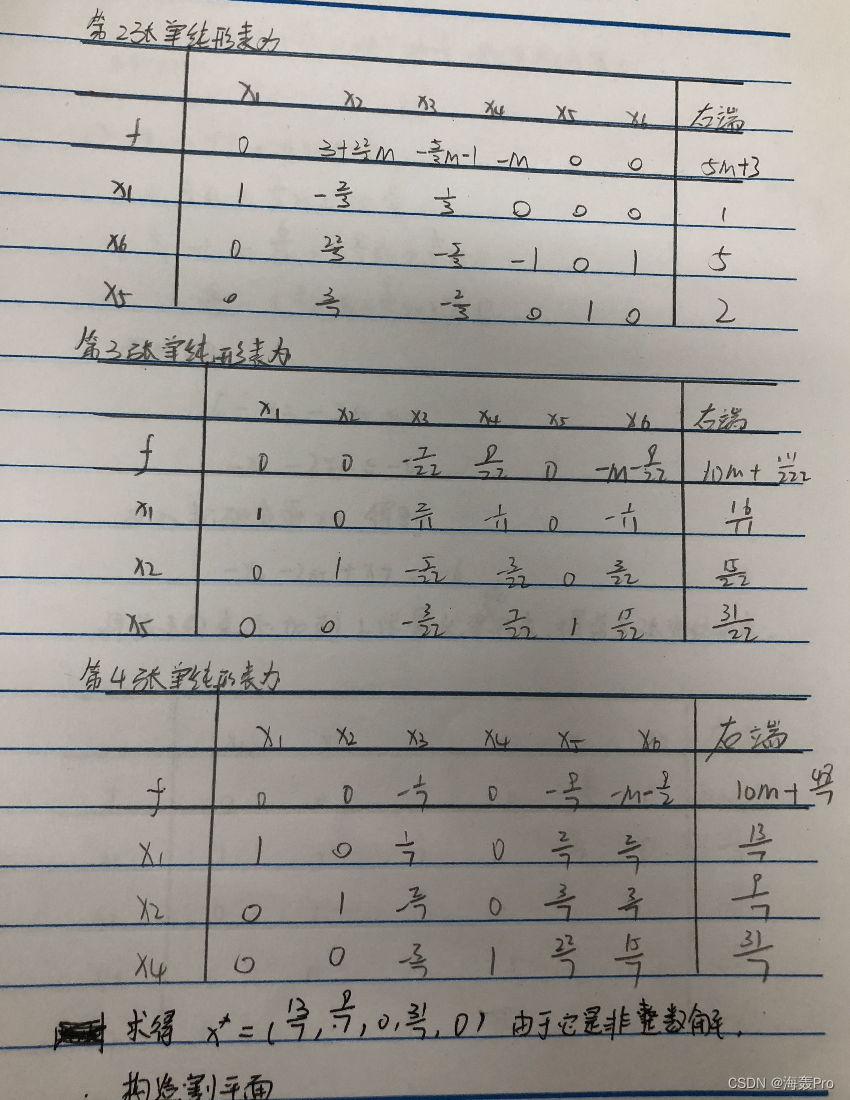 第2张单纯形表为
x1 x2 x3 x4 x5 x6 右端
f 0 -M 0 0 5M+3
x1 1 -2/3 1/3 0 0 0 1
x6 0 22/3 -5/3 -1 0 1 5
x5 0 -2/3 0 1 0 2
第3张单纯形表为
x1 x2 x3 x4 x5 x6 右端
f 0 0 -7/22 0
x1 1 0 0 -1/11 16/11
x2 0 1 -5/22 -3/22 0 3/22 15/22
x5 0 0 -3/22 7/22 1 15/22 31/22
第4张单纯形表为
x1 x2 x3 x4 x5 x6 右端
f 0 0 -1/7 0
x1 1 0 1/7 0 2/7 2/7 13/7
x2 0 1 0 3/7 3/7 9/7
x4 0 0 -3/7 1 22/7 15/7 31/7
求得 x*=(13/7, 9/7, 0, 31/7, 0) 由于它是非整数解,
构造割平面
CSDN @海轰Pro